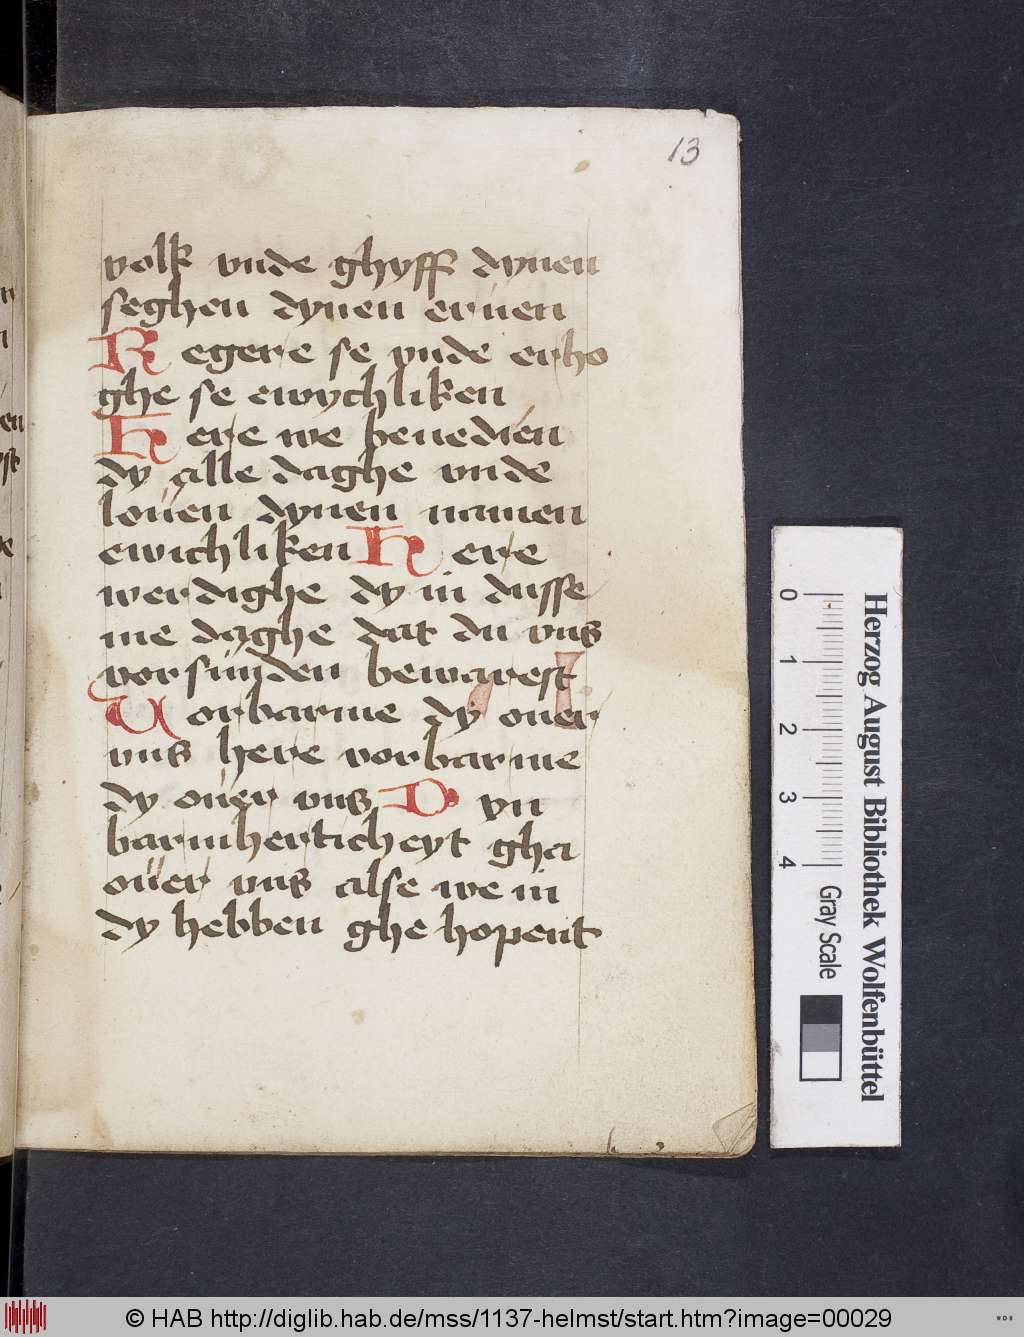 13
volk vnde ghyff dynen
seghen dynen eruen
Regere se vnde erho
ghe se ewychliken
Here we benedien
dy alle daghe vnde
louen dynen namen
ewichliken Here
werdighe dy in dusse
me daghe dat du vns
vor sunden bewarest
Uorbarme dy ouer
vns here vorbarme
dy ouer vns Dyn
barmherticheyt gha
ouer vns alse we in
dy hebben ghe hopent
0 1 2 3 4
Gray Scale
Herzog August Bibliothek Wolfenbüttel
© HAB http://diglib.hab.de/mss/1137-helmst/start.htm?image=00029